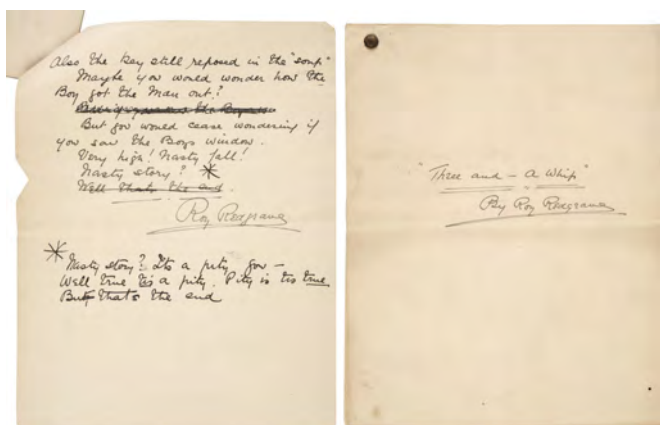 Also the key still reposed in the "soup"
Maybe you would wonder how the
Boy got the Man out?
But gov would cease wondering if
you saw the Boys window.
Very high! Nasty fall!
Nasty story? *
Well thats the end.
Roy Redgrave
* Nasty story? Its a pity gov –
Well true tis a pity. Pity is tis true
But thats the end
"Three and – A Whip"
By Roy Redgrave